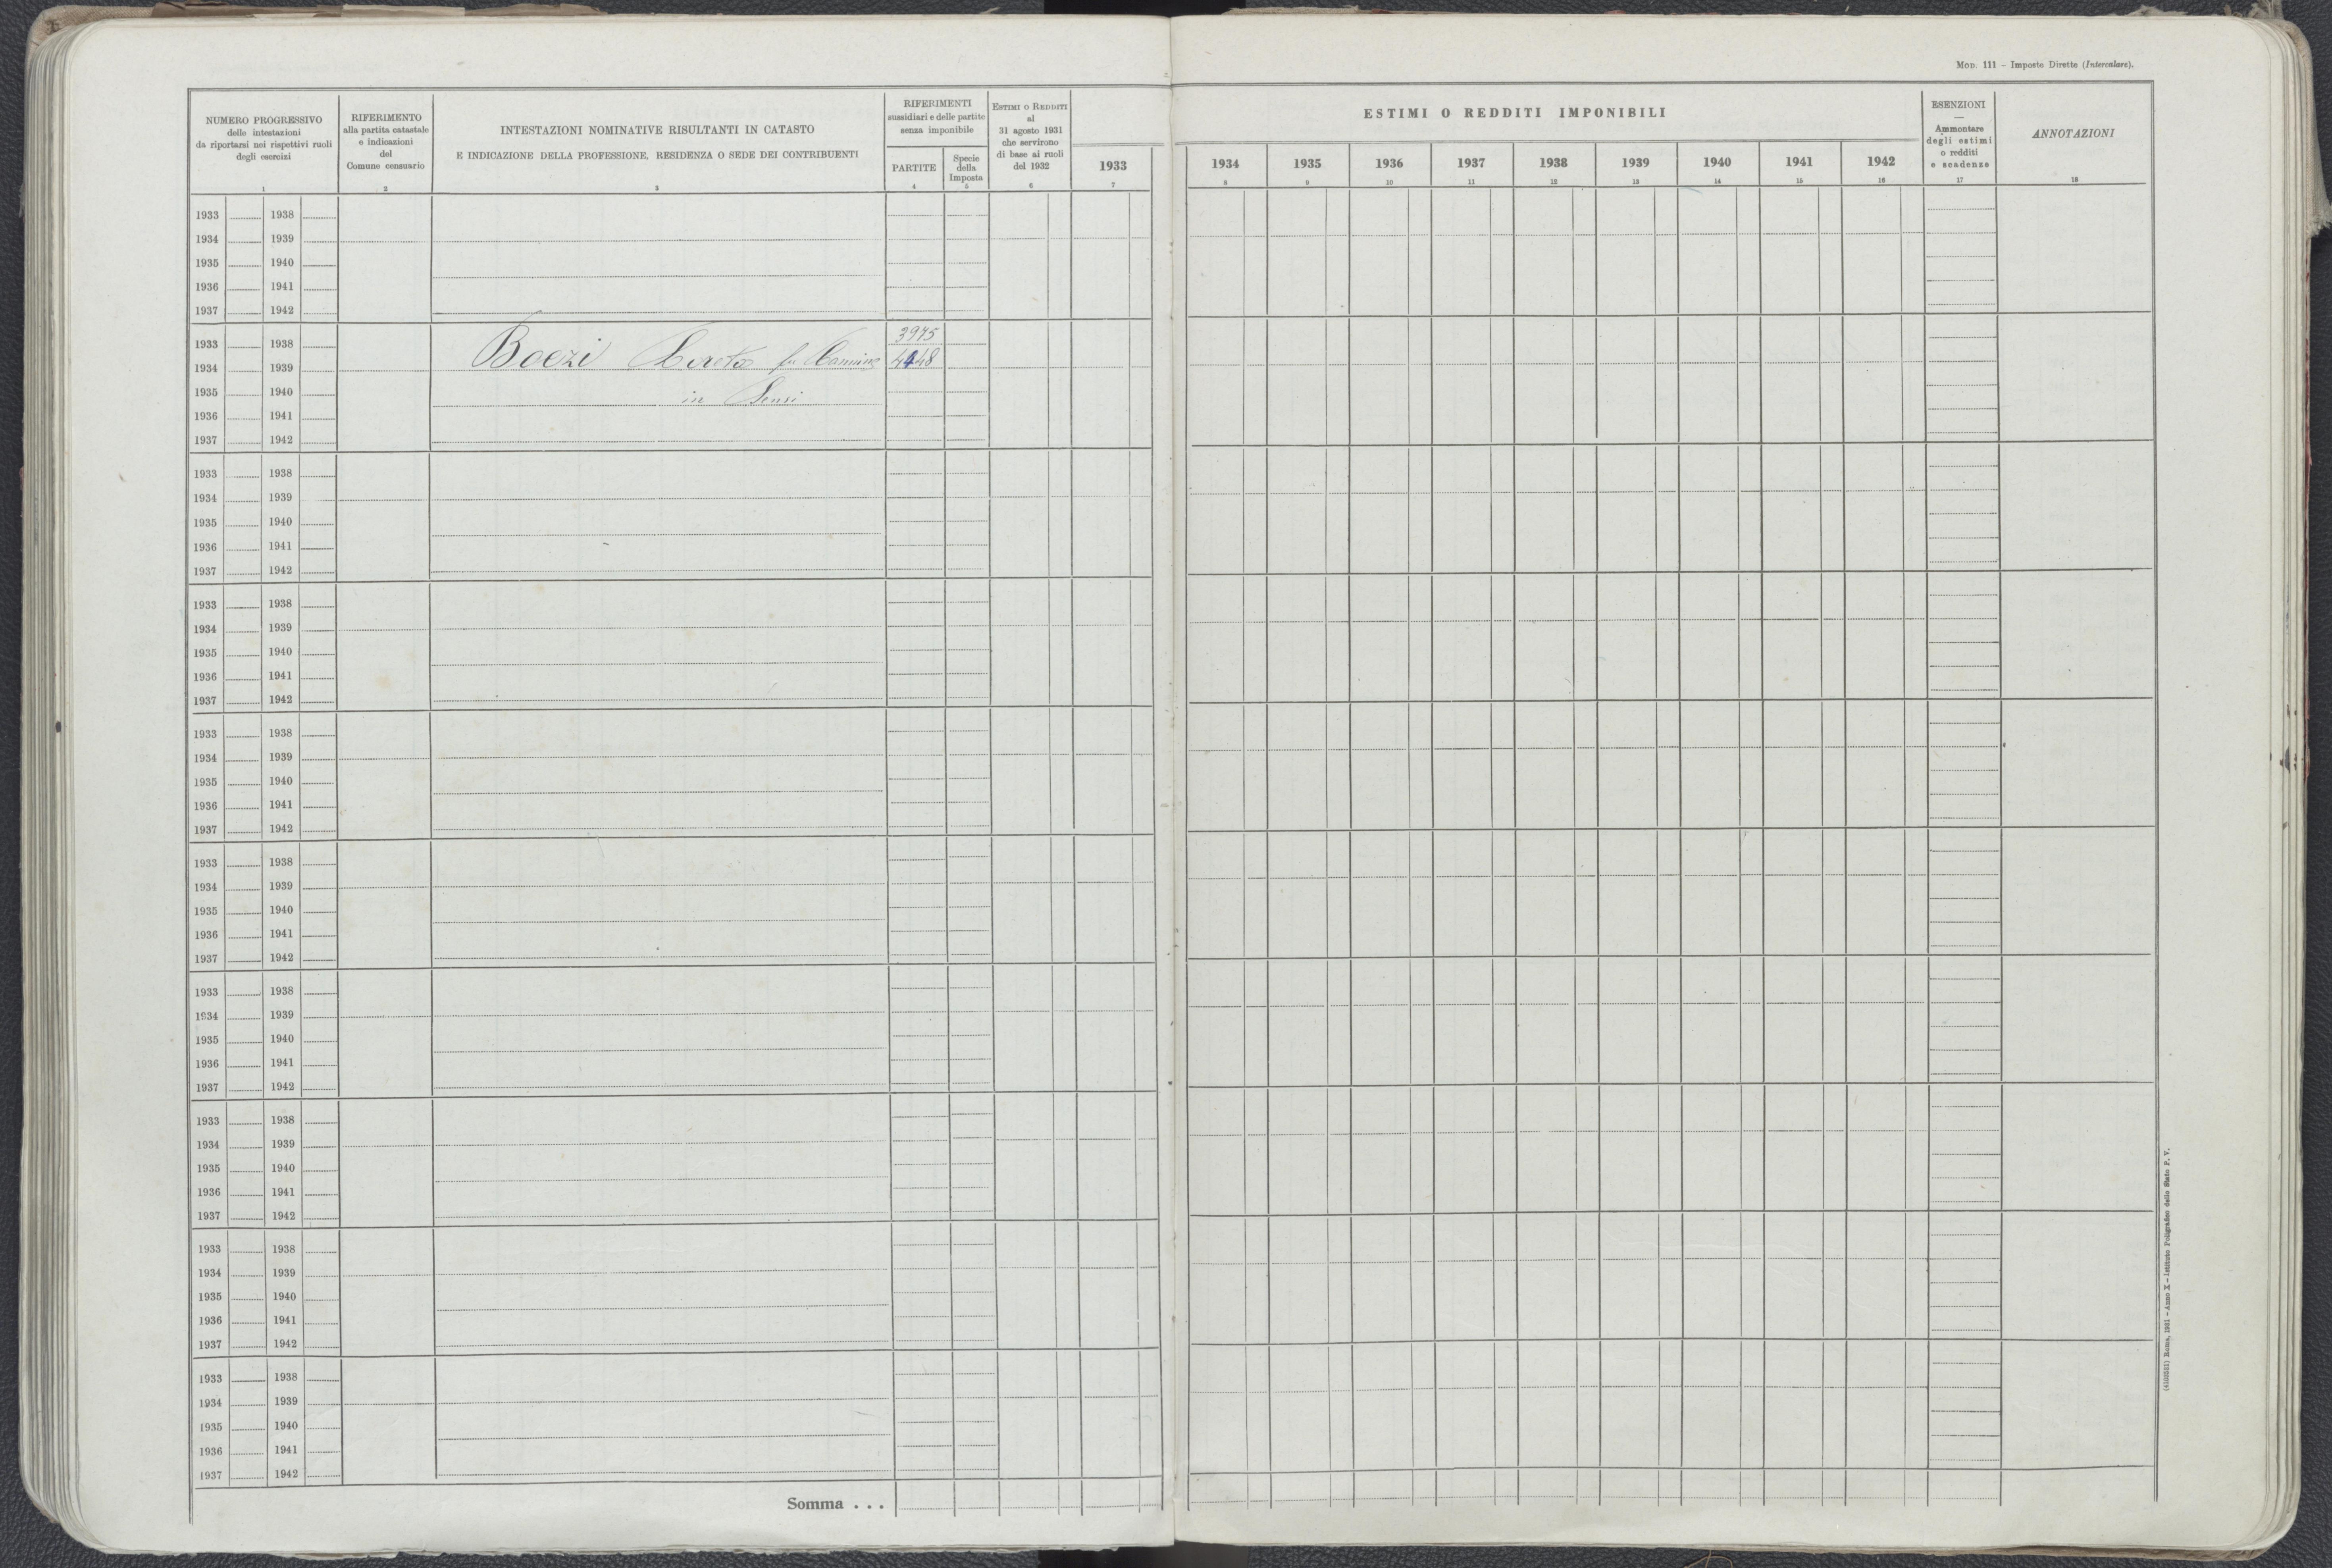 MOD. 111 - Imposte Dirette (Intercalare).
NUMERO PROGRESSIVO
delle intestazioni
da riportarsi nei rispettivi ruoli
degli esercizi
1
RIFERIMENTO
alla partita catastale
e indicazioni
del
Comune censuario
2
INTESTAZIONI NOMINATIVE RISULTANTI IN CATASTO
E INDICAZIONE DELLA PROFESSIONE, RESIDENZA O SEDE DEI CONTRIBUENTI
3
RIFERIMENTI
sussidiari e delle partite
senza imponibile
PARTITE
4
Specie
della
Imposta
5
ESTIMI O REDDITI
al
31 agosto 1931
che servirono
di base ai ruoli
del 1932
6
1933
7
ESTIMI O REDDITI IMPONIBILI
1934 1935 1936 1937 1938 1939 1940 1941 1942
8 9 10 11 12 13 14 15 16
ESENZIONI
—
Ammontare
degli estimi
o redditi
e scadenze
17
ANNOTAZIONI
18
1933 1938
1934 1939
1935 1940
1936 1941
1937 1942
3975
1933 1938
1934 1939 Boezi Loreta fu
1935 1940 in Sensi
1936 1941
1937 1942
1933 1938
1934 1939
1935 1940
1936 1941
1937 1942
1933 1938
1934 1939
1935 1940
1936 1941
1937 1942
1933 1938
1934 1939
1935 1940
1936 1941
1937 1942
1933 1938
1934 1939
1935 1940
1936 1941
1937 1942
1933 1938
1934 1939
1935 1940
1936 1941
1937 1942
1933 1938
1934 1939
1935 1940
1936 1941
1937 1942
1933 1938
1934 1939
1935 1940
1936 1941
1937 1942
1933 1938
1934 1939
1935 1940
1936 1941
1937 1942
Somma . . .
Roma, 1931 - Anno X - Istituto Poligrafico dello Stato P. V.